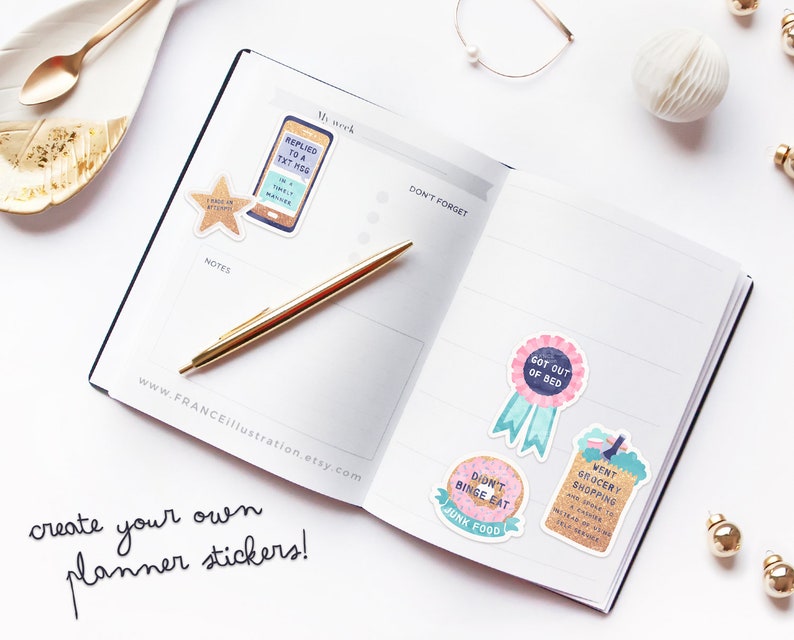 My week
REPLIED
TO A
TXT MSG
IN A
TIMELY
MANNER
I MADE AN
ATTEMPT!
DON'T FORGET
NOTES
www.FRANCEillustration.etsy.com
GOT OUT
OF BED
DIDN'T
BINGE EAT
JUNK FOOD
WENT
GROCERY
SHOPPING
AND SPOKE TO
A CASHIER
INSTEAD OF USING
SELF SERVICE
create your own
planner stickers!